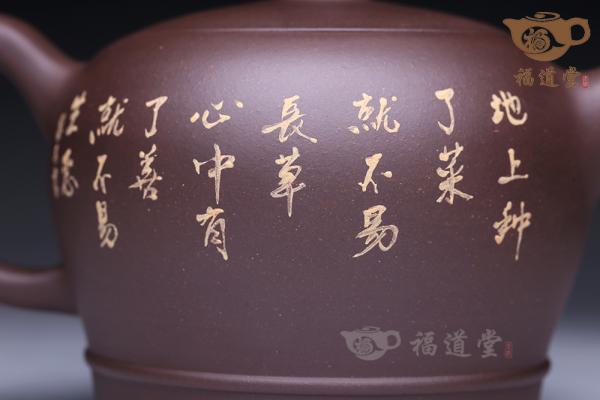 地上种
了菜
就不易
長草
心中有
了善
就不易
生惡
福道堂
福道堂